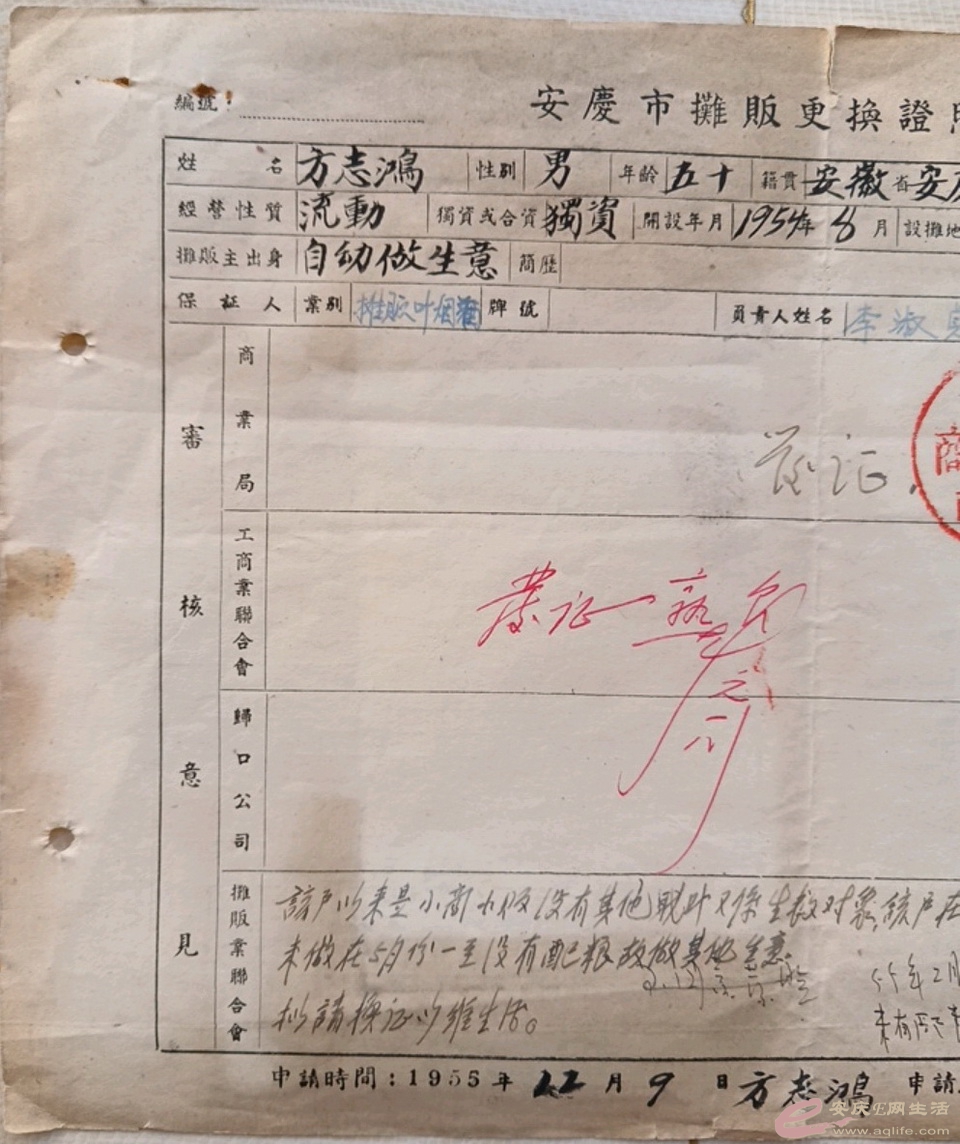 編號：
安慶市攤販更換證
姓名 方志鴻 性別 男 年齡 五十 籍貫 安徽省安
經營性質 流動 獨資或合資 獨資 開設年月 1954年8月 設攤地
攤販主出身 自动做生意 簡歷
保証人 業別 摊販叶烟酒 牌號 員責人姓名 李淑
審核意見
商業局
发证.
商
工商業聯合會
業证
歸口公司
攤販業聯合會
該户以来是小商小贩没有其他職叶又係生救对象該户在
未做在5月份一至没有配粮故做其他生意
55年2月
拟請换证以维生活。
申請時間：1955年12月9日 方志鴻 申請
安庆E网生活
www.aqlife.com